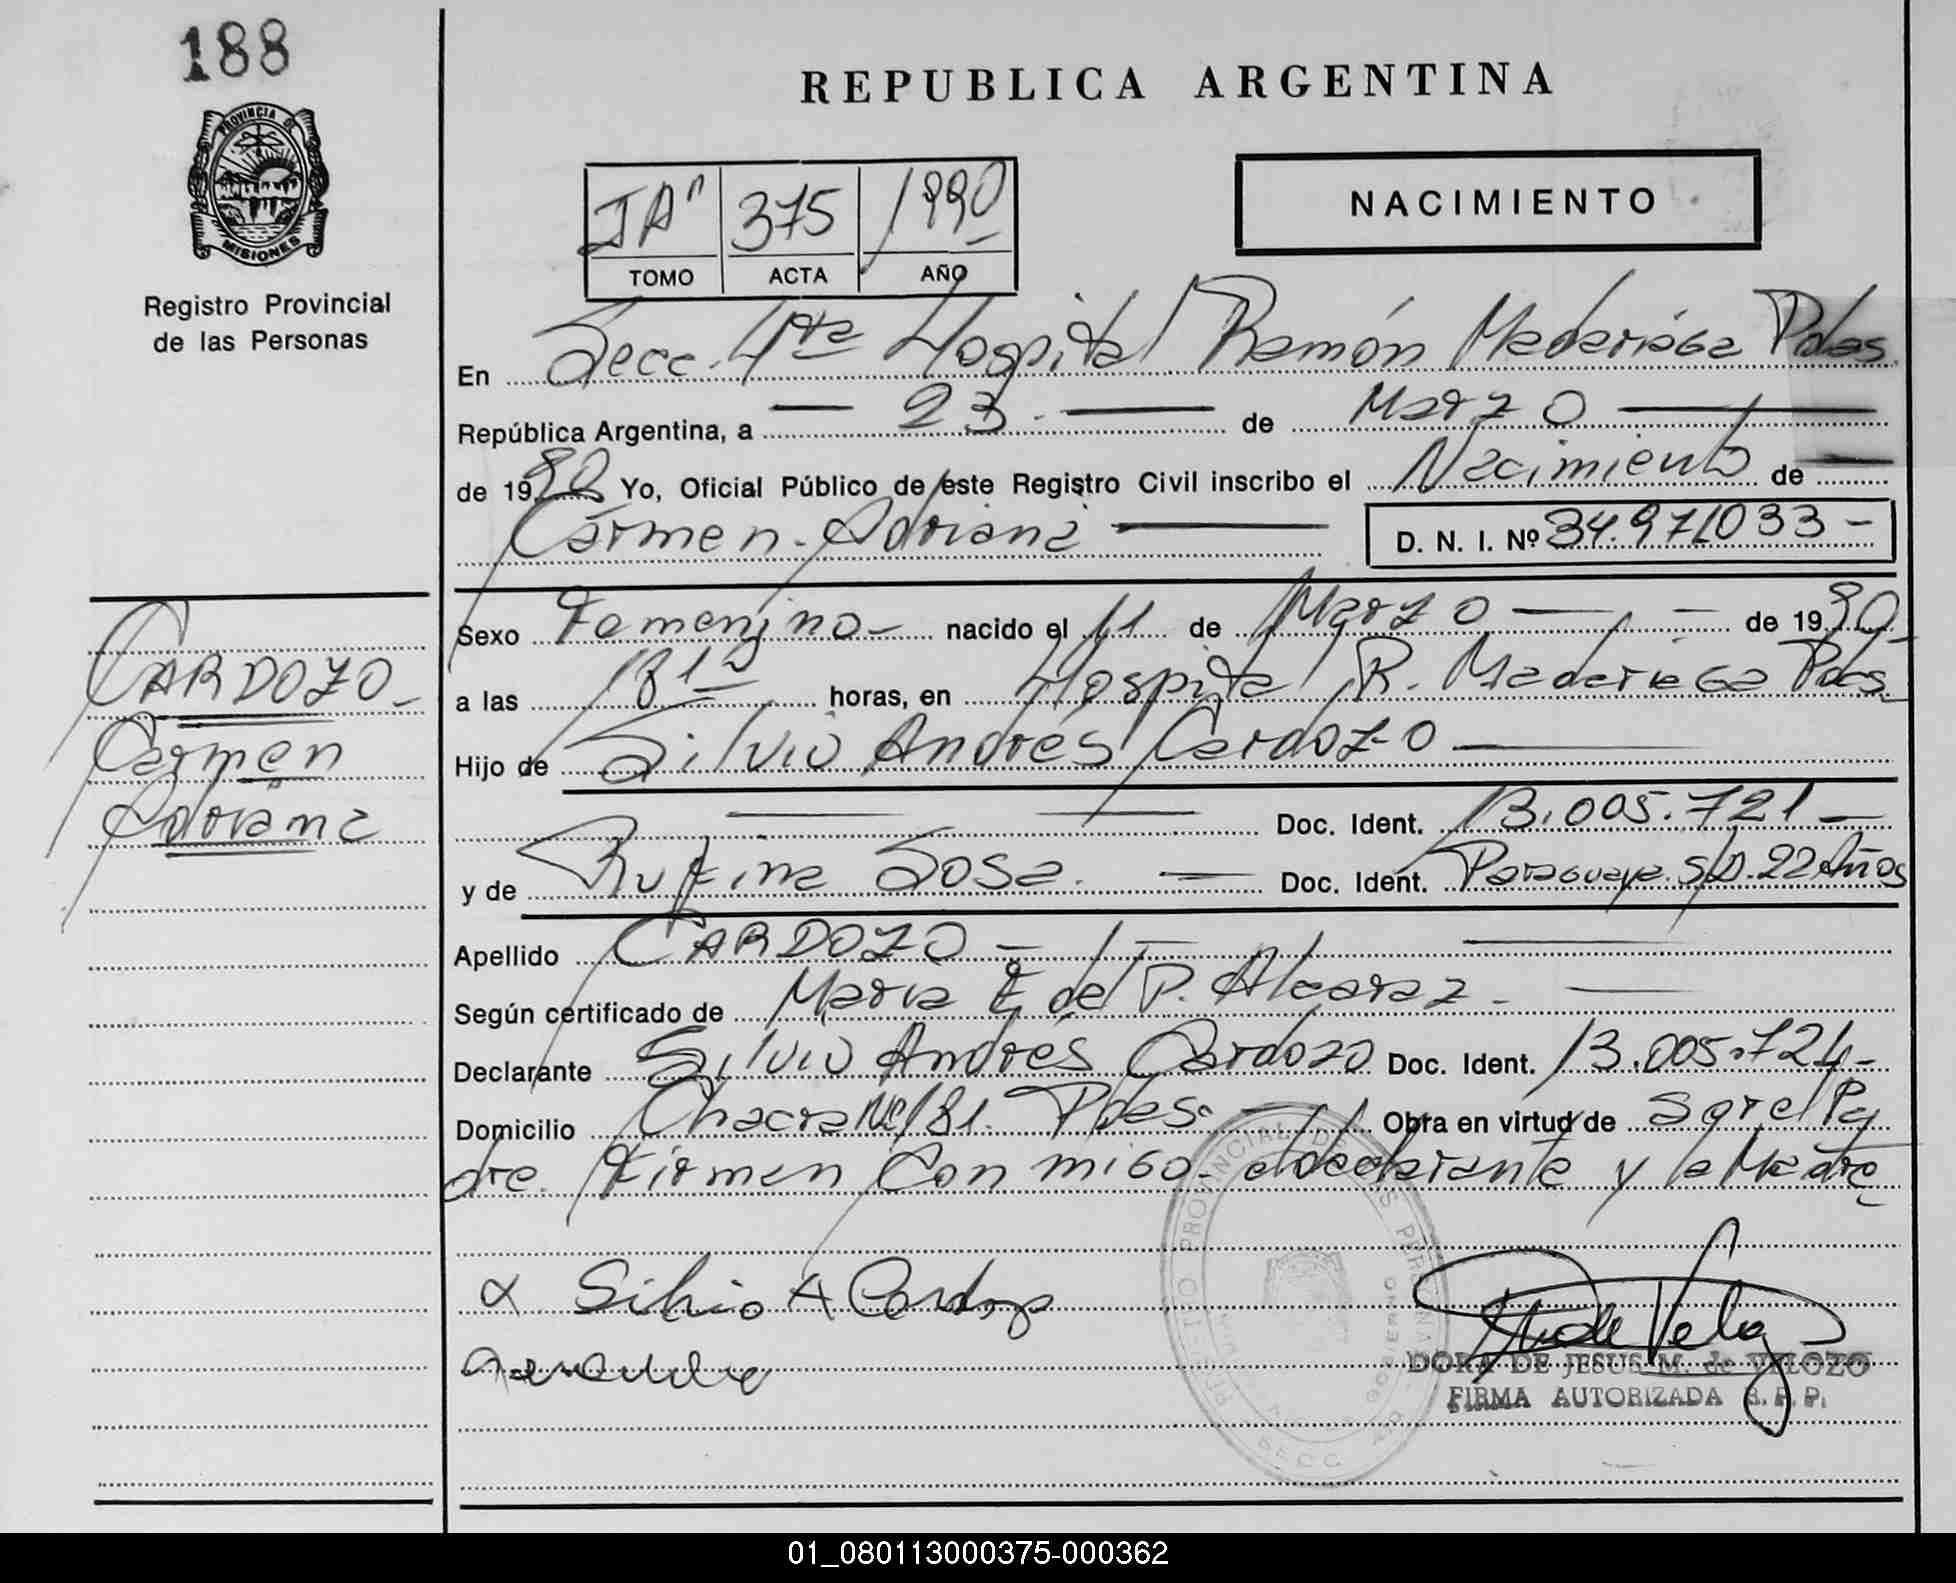 188
PROVINCIA DE
MISIONES
Registro Provincial
de las Personas
REPUBLICA ARGENTINA
NACIMIENTO
IA" 375 1990
TOMO ACTA AÑO
En Secc. 4ta Hospital Ramón Madariaga Pdas.
República Argentina, a 23 de Marzo
de 1990 Yo, Oficial Público de este Registro Civil inscribo el Nacimiento de
Carmen Adriana D. N. I. Nº 34.971033
CARDOZO
Carmen
Adriana
Sexo Femenino nacido el 11 de Marzo de 1990
a las 18 10 horas, en Hospital R. Madariaga Pdas
Hijo de Silvio Andrés Cardozo
Doc. Ident. 13.005.721
y de Rufina Sosa Doc. Ident. Paraguaya S/D. 22 Años
Apellido CARDOZO
Según certificado de Maria E del P. Alcaraz
Declarante Silvio Andrés Cardozo Doc. Ident. 13.005.721
Domicilio Chacra Nº 181. Pdas. Obra en virtud de ser el Pa
dre. Firman conmigo el declarante y la Madre
Silvio A Cardozo
DORA DE JESUS M. de VELOZO
FIRMA AUTORIZADA R. P. P.
01_080113000375-000362